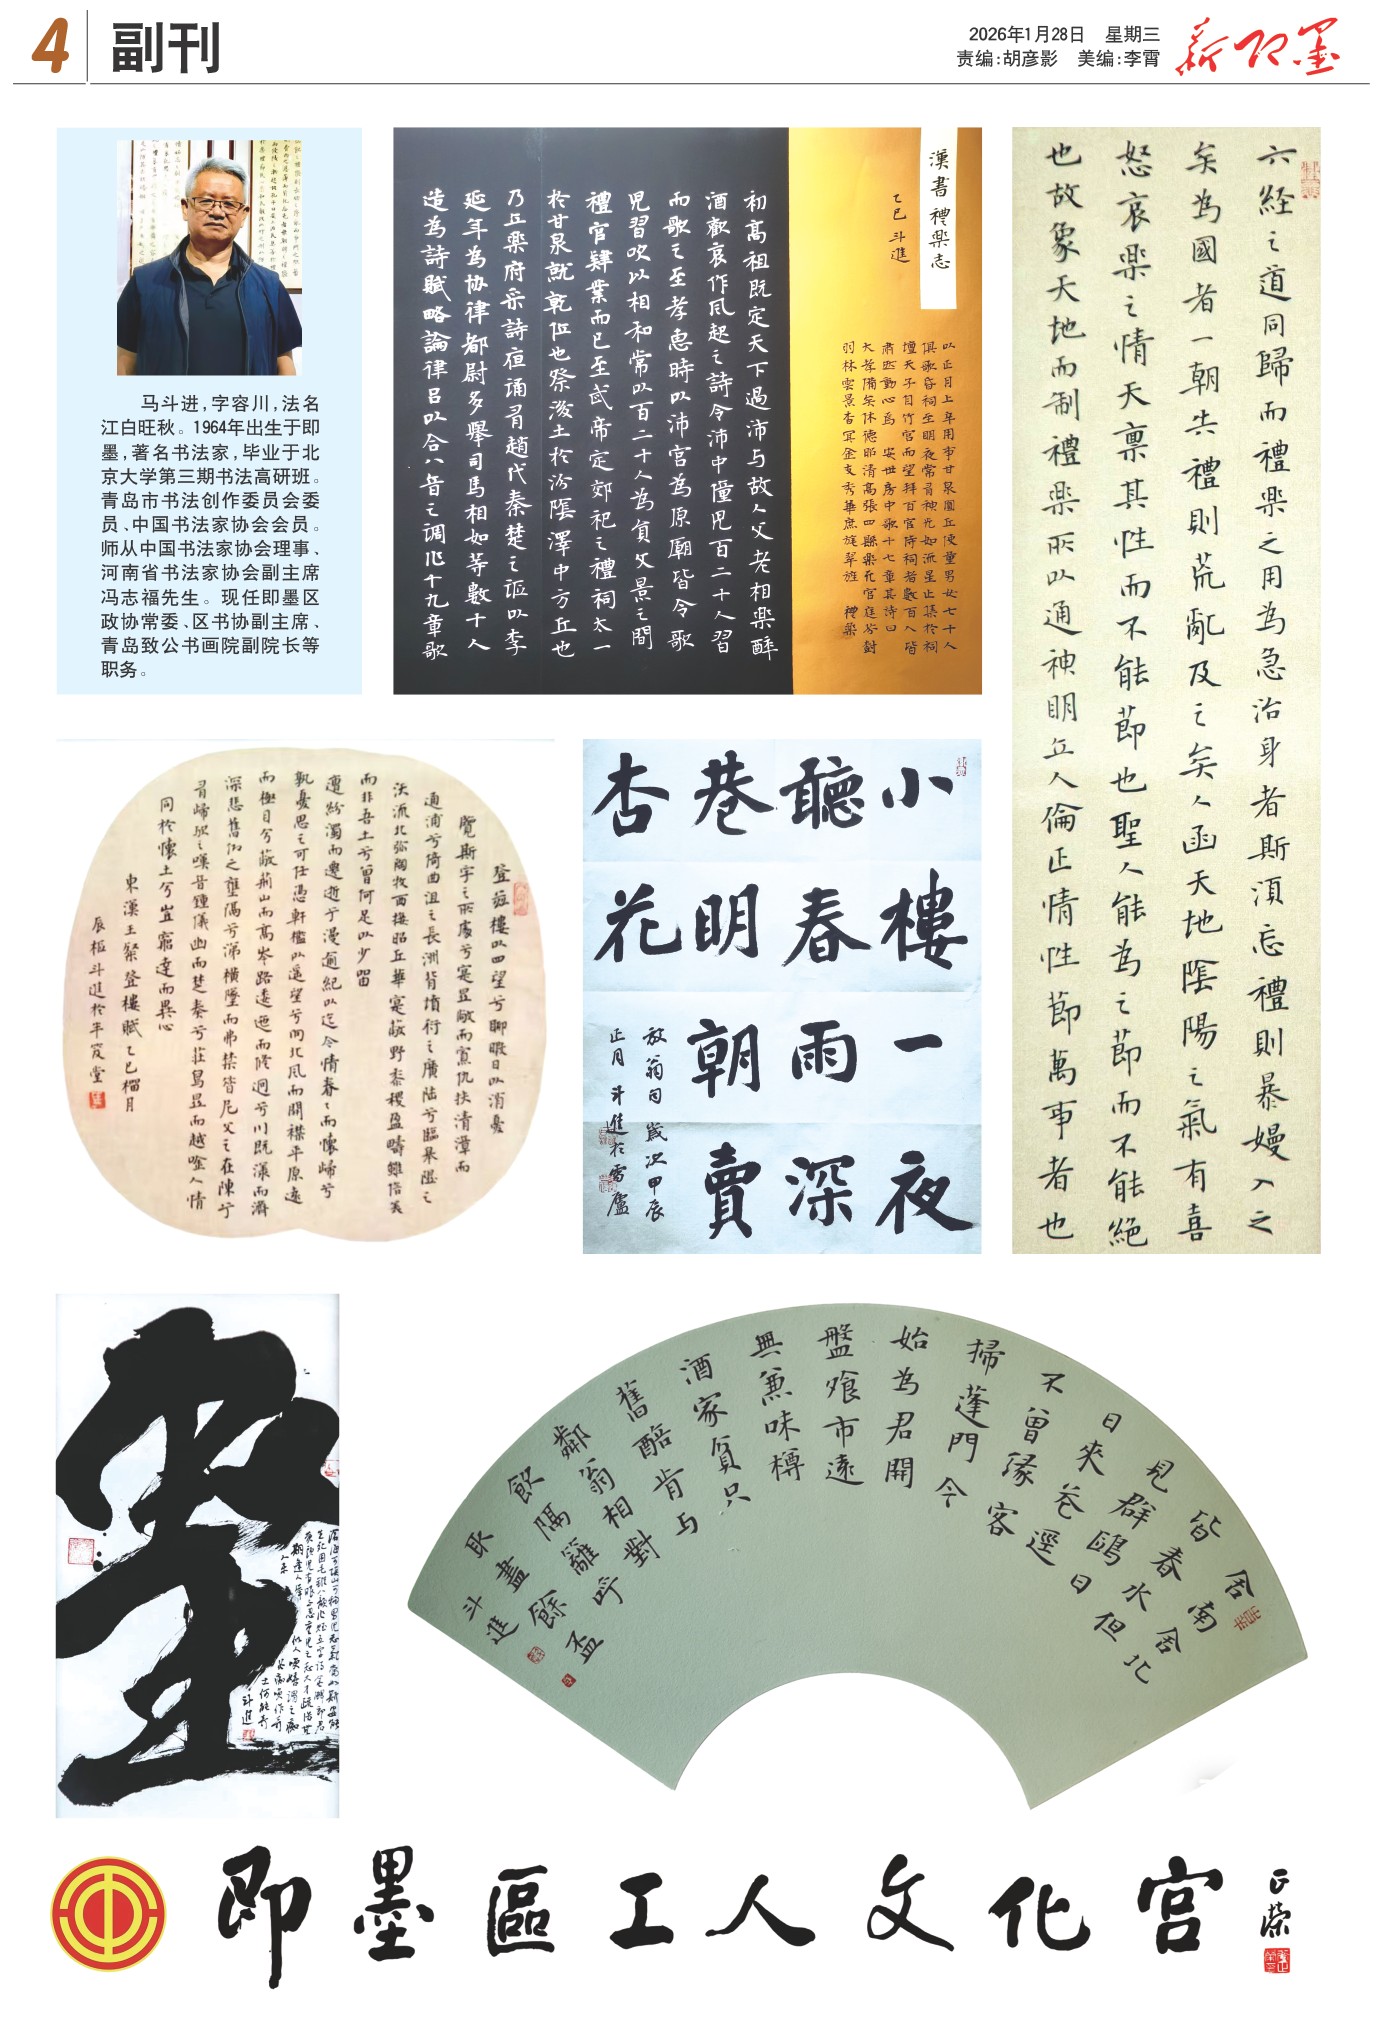 4
副刊
2026年1月28日 星期三
责编:胡彦影 美编:李霄
新即墨
马斗进,字容川,法名
江白旺秋。1964年出生于即
墨,著名书法家,毕业于北
京大学第三期书法高研班。
青岛市书法创作委员会委
员、中国书法家协会会员。
师从中国书法家协会理事、
河南省书法家协会副主席
冯志福先生。现任即墨区
政协常委、区书协副主席、
青岛致公书画院副院长等
职务。
漢書禮樂志
乙巳 斗進
以正月上辛用事甘泉圜丘使童男女七十人
俱歌昏祠至明夜常有神光如流星止集於祠
壇天子自竹宮而望拜百官侍祠者數百人皆
肅然動心焉 安世房中歌十七章其詩曰
大孝備矣休德昭清高張四縣樂充宮庭芬封
羽林雲景杳冥金支秀華庶旄翠旌 禮樂
初高祖既定天下過沛与故人父老相樂醉
酒歡哀作風起之詩令沛中僮兒百二十人習
而歌之至孝惠時以沛宮為原廟皆令歌
兒習吹以相和常以百二十人為員文景之間
禮官肄業而已至武帝定郊祀之禮祠太一
於甘泉就乾位也祭后土於汾陰澤中方丘也
乃立樂府采詩夜誦有趙代秦楚之謳以李
延年為協律都尉多舉司馬相如等數十人
造為詩賦略論律呂以合八音之調作十九章歌
六経之道同歸而禮樂之用為急治身者斯須忘禮則暴嫚入之
矣為國者一朝失禮則荒亂及之矣人函天地陰陽之氣有喜
怒哀樂之情天稟其性而不能節也聖人能為之節而不能絕
也故象天地而制禮樂所以通神明立人倫正情性節萬事者也
登茲樓以四望兮聊暇日以消憂
覽斯宇之所處兮寔顯敞而寡仇挾清漳而
通浦兮倚曲沮之長洲背墳衍之廣陸兮臨皋隰之
沃流北弥陶牧西接昭丘華寔蔽野黍稷盈疇雖信美
而非吾土兮曾何足以少留
遭紛濁而遷逝兮漫逾紀以迄今情眷眷而懷歸兮
孰憂思之可任憑軒檻以遥望兮向北風而開襟平原遠
而極目兮蔽荊山而高岑路逶迤而修迥兮川既漾而濟
深悲舊鄉之壅隔兮涕橫墜而弗禁昔尼父之在陳兮
有歸歟之嘆音鍾儀幽而楚奏兮莊舄顯而越唫人情
同於懷土兮豈窮達而異心
東漢王粲登樓賦乙巳榴月
小樓一夜
聽春雨深
巷明朝賣
杏花
放翁句 歲次甲辰
正月 斗進於
斗進
舍南
舍北
皆春水但
見群鷗日
日來花逕
不曾緣客
掃蓬門今
始為君開
盤飧市遠
無兼味樽
酒家貧只
舊醅肯与
鄰翁相對
飲隔籬呼
取盡餘盃
斗進
即墨區工人文化宮
正榮